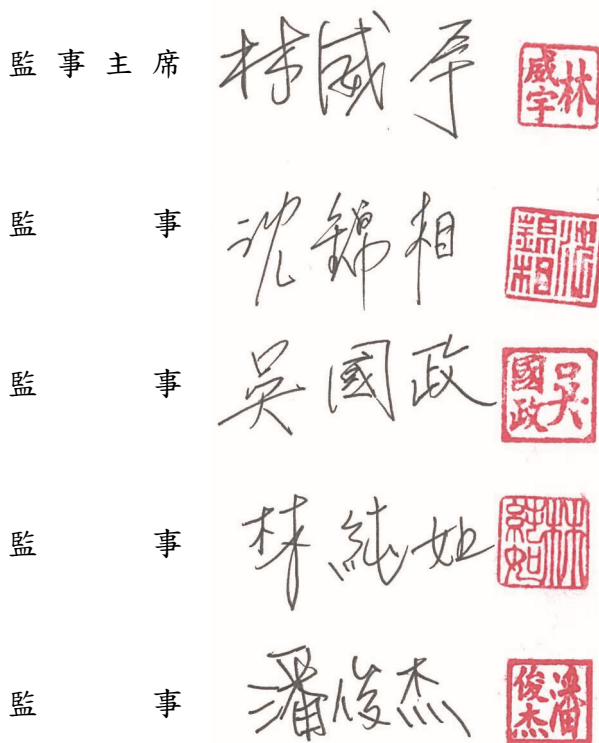 監事主席 林威宇 林威宇
監事 沈錦相 沈錦相
監事 吳國政 吳國政
監事 林純如 林純如
監事 潘俊杰 潘俊杰